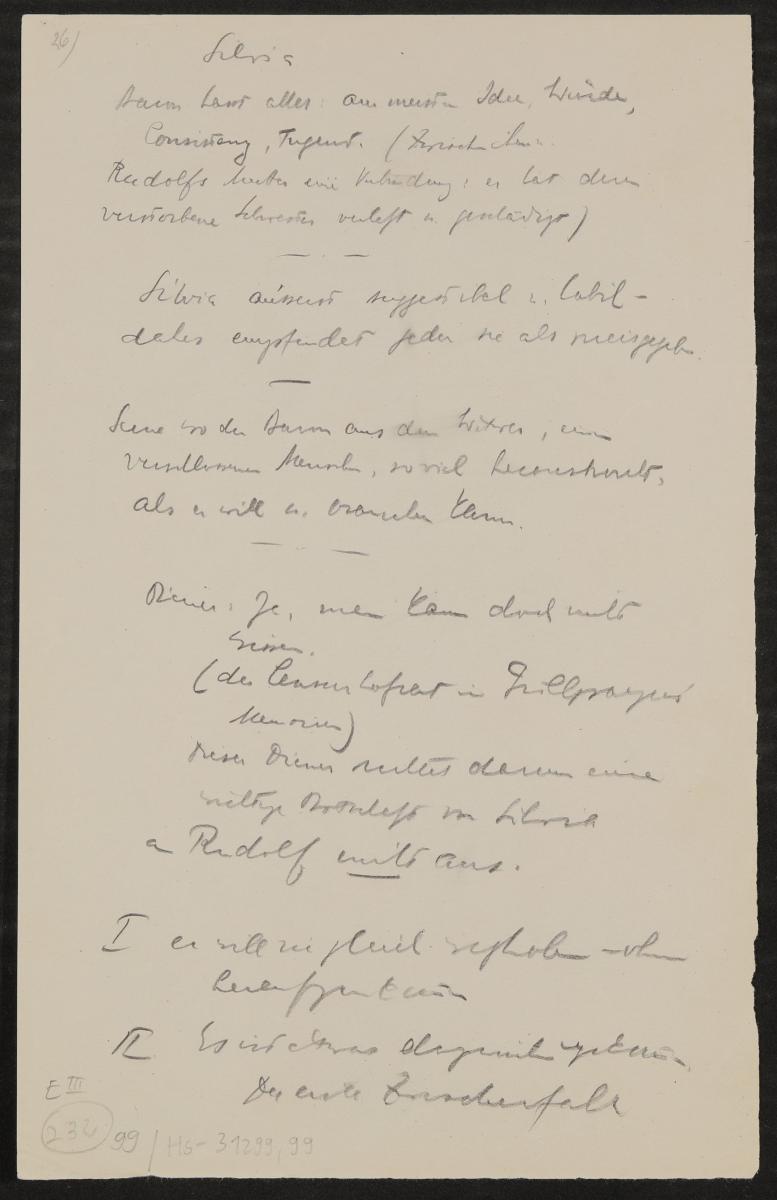 26)
Silvia
Baron hasst alles: am meisten Idee, Würde,
Consistenz, Tugend. (Zwischen ihm u.
Rudolfs Mutter eine Verbindung: er hat deren
verstorbene Schwester verletzt u. geschädigt)
Silvia äusserst suggestibel u. labil –
daher empfindet jeder sie als preisgegeben.
Scene wo der Baron aus dem, einem
verschlossenen Menschen, so viel herausholt,
als er will u. brauchen kann.
Diener: Ja, man kann doch nicht
wissen.
(der Censurhofrat in Grillparzers
Memoiren)
Dieser Diener richtet darum eine
wichtige Botschaft von Silvia
an Rudolf nicht aus.
I er will sie gleich wegholen – ohne
heraufzukommen
II Es ist etwas dazwischen gekommen.
Der erste Zwischenfall
E III
232
99 / Hs-31299,99